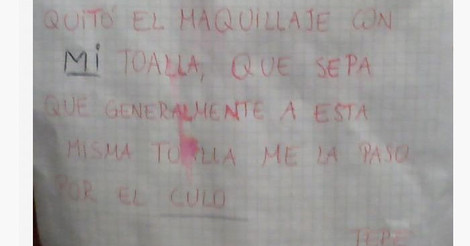 QUITÓ EL MAQUILLAJE CON
MI TOALLA, QUE SEPA
QUE GENERALMENTE A ESTA
MISMA TOALLA ME LA PASO
POR EL CULO